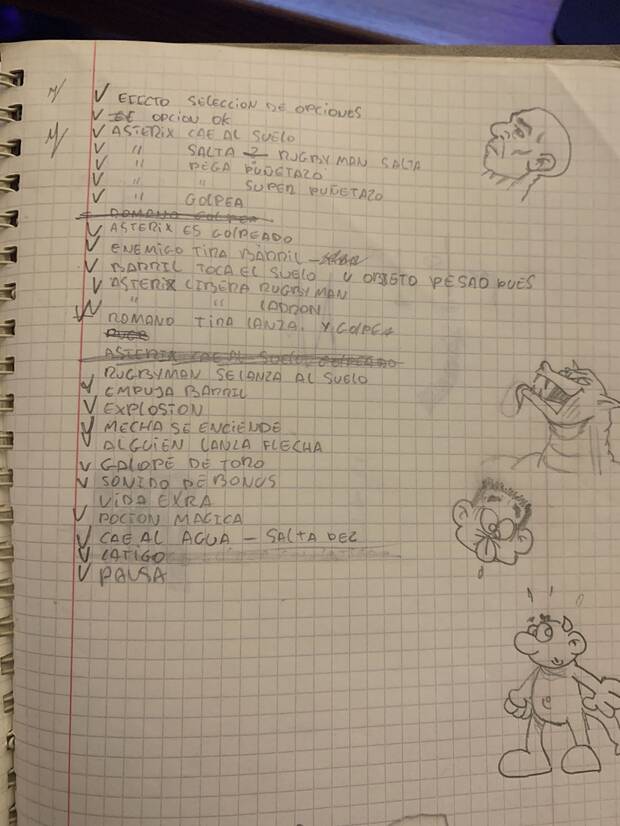 ✓ EFECTO SELECCION DE OPCIONES
✓ OPCION OK
✓ ASTERIX CAE AL SUELO
✓ " SALTA 2 RUGBYMAN SALTA
✓ " PEGA PUÑETAZO
✓ " " SUPER PUÑETAZO
✓ " GOLPEA
ROMANO GOLPEA
✓ ASTERIX ES GOLPEADO
✓ ENEMIGO TIRA BARRIL -
✓ BARRIL TOCA EL SUELO U OBJETO PESAO PUES
✓ ASTERIX LIBERA RUGBYMAN
✓ " " LADRON
✓ ROMANO TIRA LANZA. Y GOLPEA
ASTERIX CAE AL SUELO GOLPEADO
RUGBYMAN SE LANZA AL SUELO
✓ EMPUJA BARRIL
✓ EXPLOSION
✓ MECHA SE ENCIENDE
✓ ALGUIEN LANZA FLECHA
✓ GALOPE DE TORO
✓ SONIDO DE BONUS
VIDA EXRA
✓ POCION MAGICA
✓ CAE AL AGUA - SALTA DEZ
✓ LATIGO
✓ PAUSA